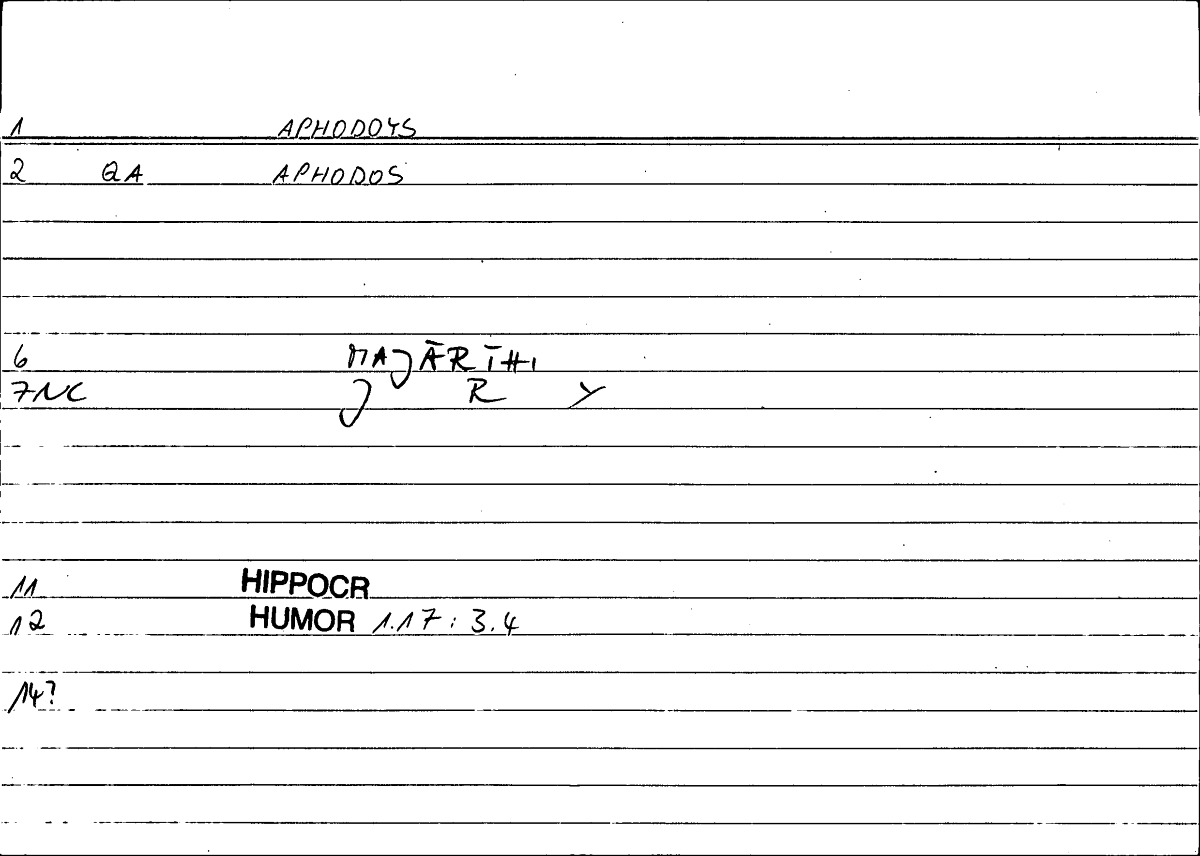 1 APHODOYS
2 QA APHODOS
6 MAJĀRĪHI
7NC J R Y
11 HIPPOCR
12 HUMOR 1.17: 3.4
14?